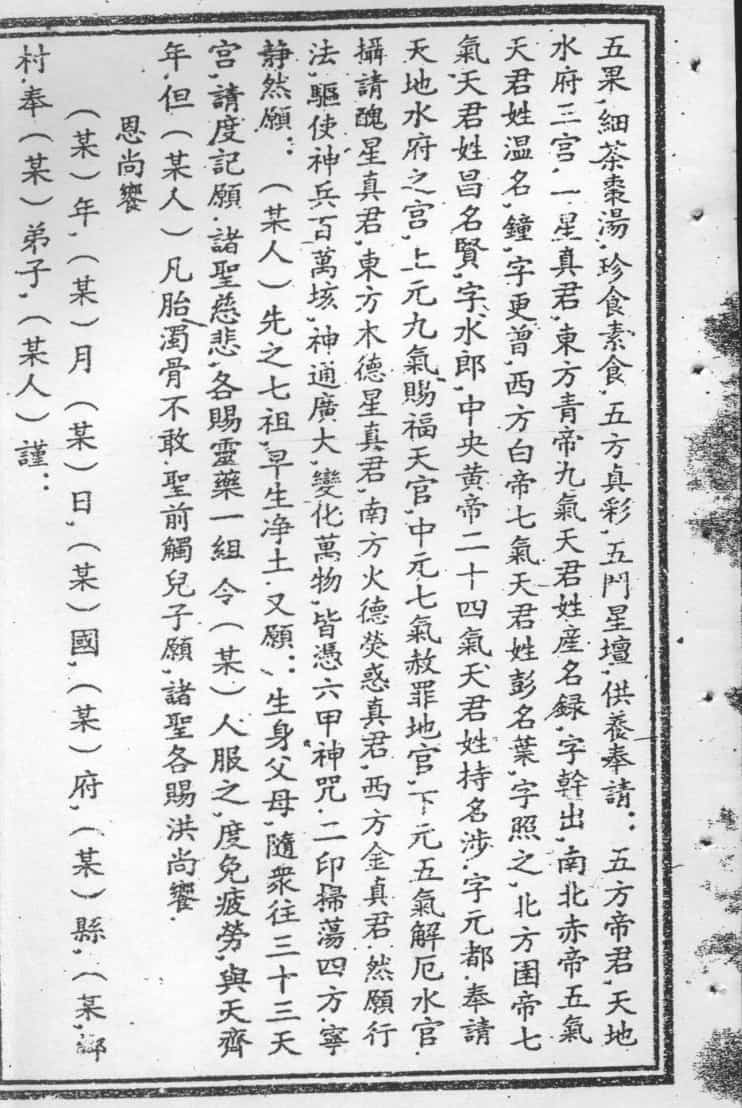 五果,細茶棗湯,珍食素食,五方真彩,五門星壇,供養奉請:五方帝君,天地
水府三宫.一星真君,東方青帝九氣天君姓産名録,字幹出,南北赤帝五氣
天君姓温名,鐘,字更曾,西方白帝七氣天君姓彭名葉,字照之,北方圉帝七
氣天君姓昌名賢,字水郎,中央黄帝二十四氣天君姓持名涉.字元都.奉請
天地水府之宫,上元九氣賜福天官,中元七氣赦罪地官,下元五氣解厄水官.
攝請醜星真君,東方木德星真君,南方火德熒惑真君,西方金真君.然願行
法,驅使神兵百萬垓,神通廣大,變化萬物,皆憑六甲神咒.二印掃蕩四方.寧
静然願:(某人)先之七祖,早生净土.又願:、生身父母,隨衆往三十三天
宫,請度記願.諸聖慈悲,各賜靈藥一組 令(某)人服之,度免疲勞,與天齊
年,但(某人)凡胎濁骨不敢.聖前觸兒子願,諸聖各賜洪尚饗.
恩尚饗
(某)年,(某)月(某)日,(某)國,(某)府,(某)縣,(某,鄉
村.奉(某)弟子,(某人)謹: